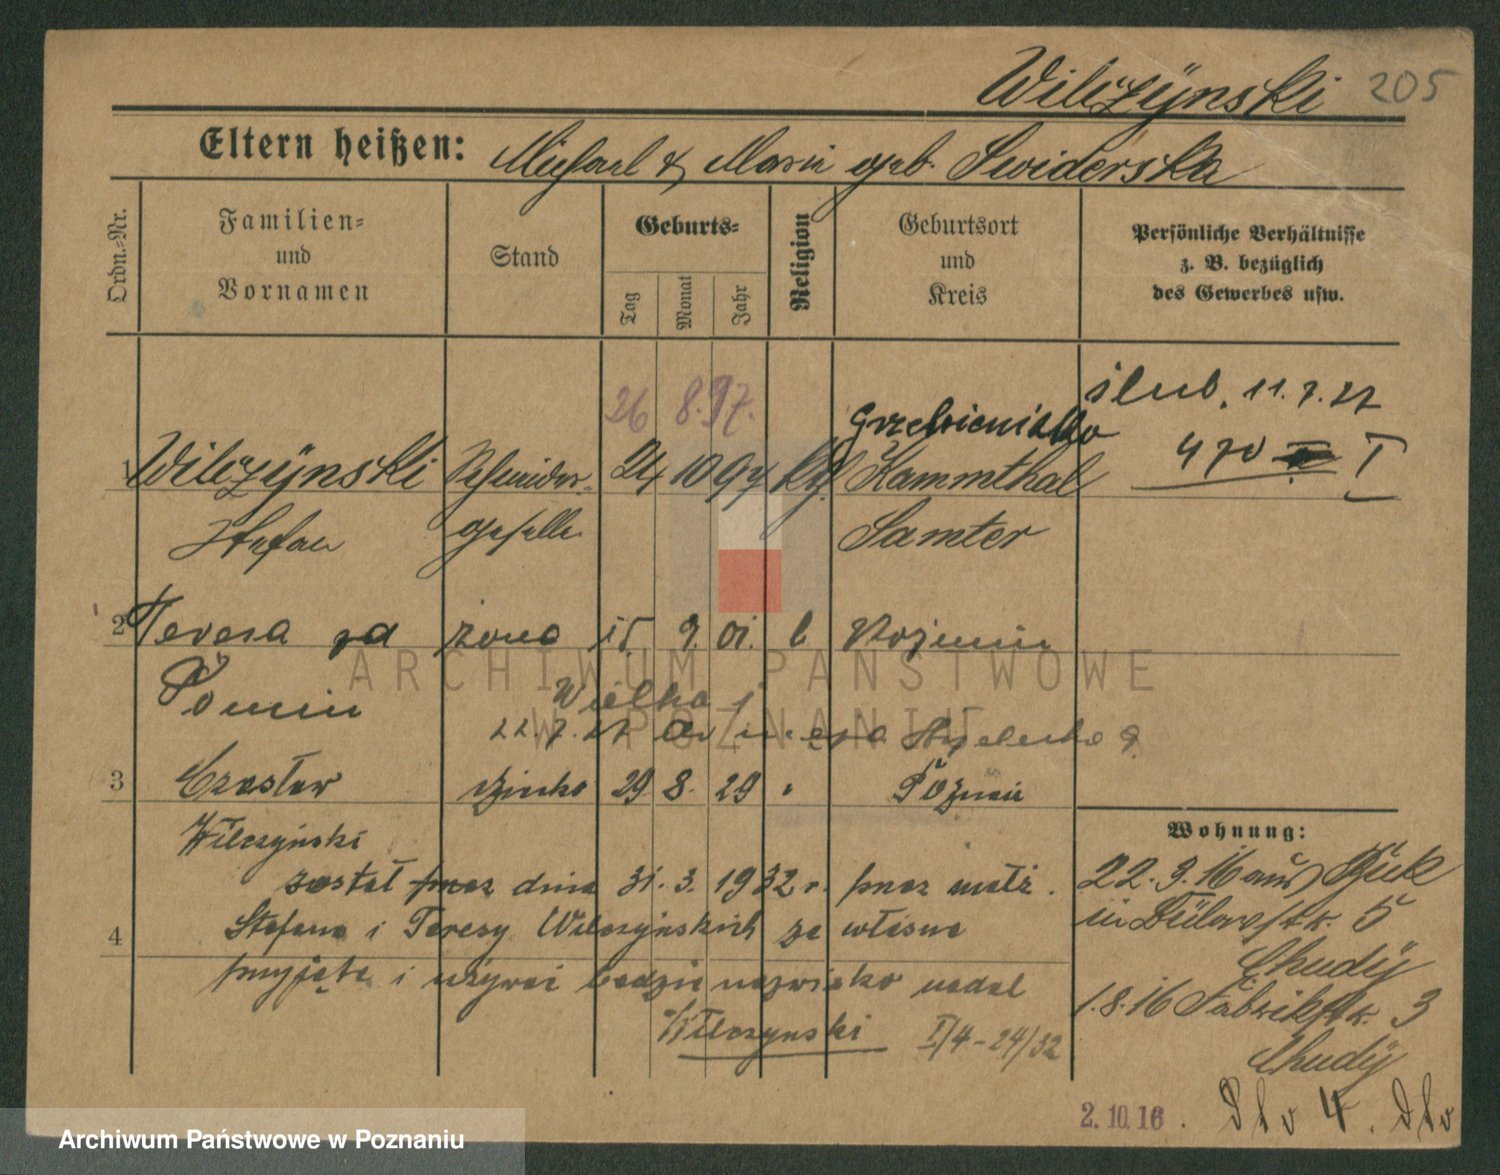 Wilczÿnski 205
Eltern heißen: Michael & Maria geb. Swiderska
Ordn.-Nr.
Familien-
und
Vornamen
Stand
Geburts-
Tag
Monat
Jahr
Religion
Geburtsort
und
Kreis
Persönliche Verhältnisse
z. B. bezüglich
des Gewerbes usw.
26 8. 97.
ślub. 11.7.27
470 I
Grzebienisko
1 Wilczÿnski Schneider- 24 10 97 kth Kammthal
Stefan geselle Samter
2 Teresa zd żona 15. 9. 01.
Wielka
22.7.27
3 Czesław 29 8. 29 " Poznań
Wilczyński
został przez dnia 31. 3. 1932 r. przez małż.
4 Stefana i Teresy Wilczyńskich za własne
przyjęte i używać będzie nazwisko nadal
Wilczynski I/4-24/32
Wohnung:
22. 3. 16 aus Buk
in Bülowstr. 5
Chudÿ
1. 8. 16 Fabrikstr. 3
Chudÿ
2.10.16.
ARCHIWUM PAŃSTWOWE
W POZNANIU
Archiwum Państwowe w Poznaniu